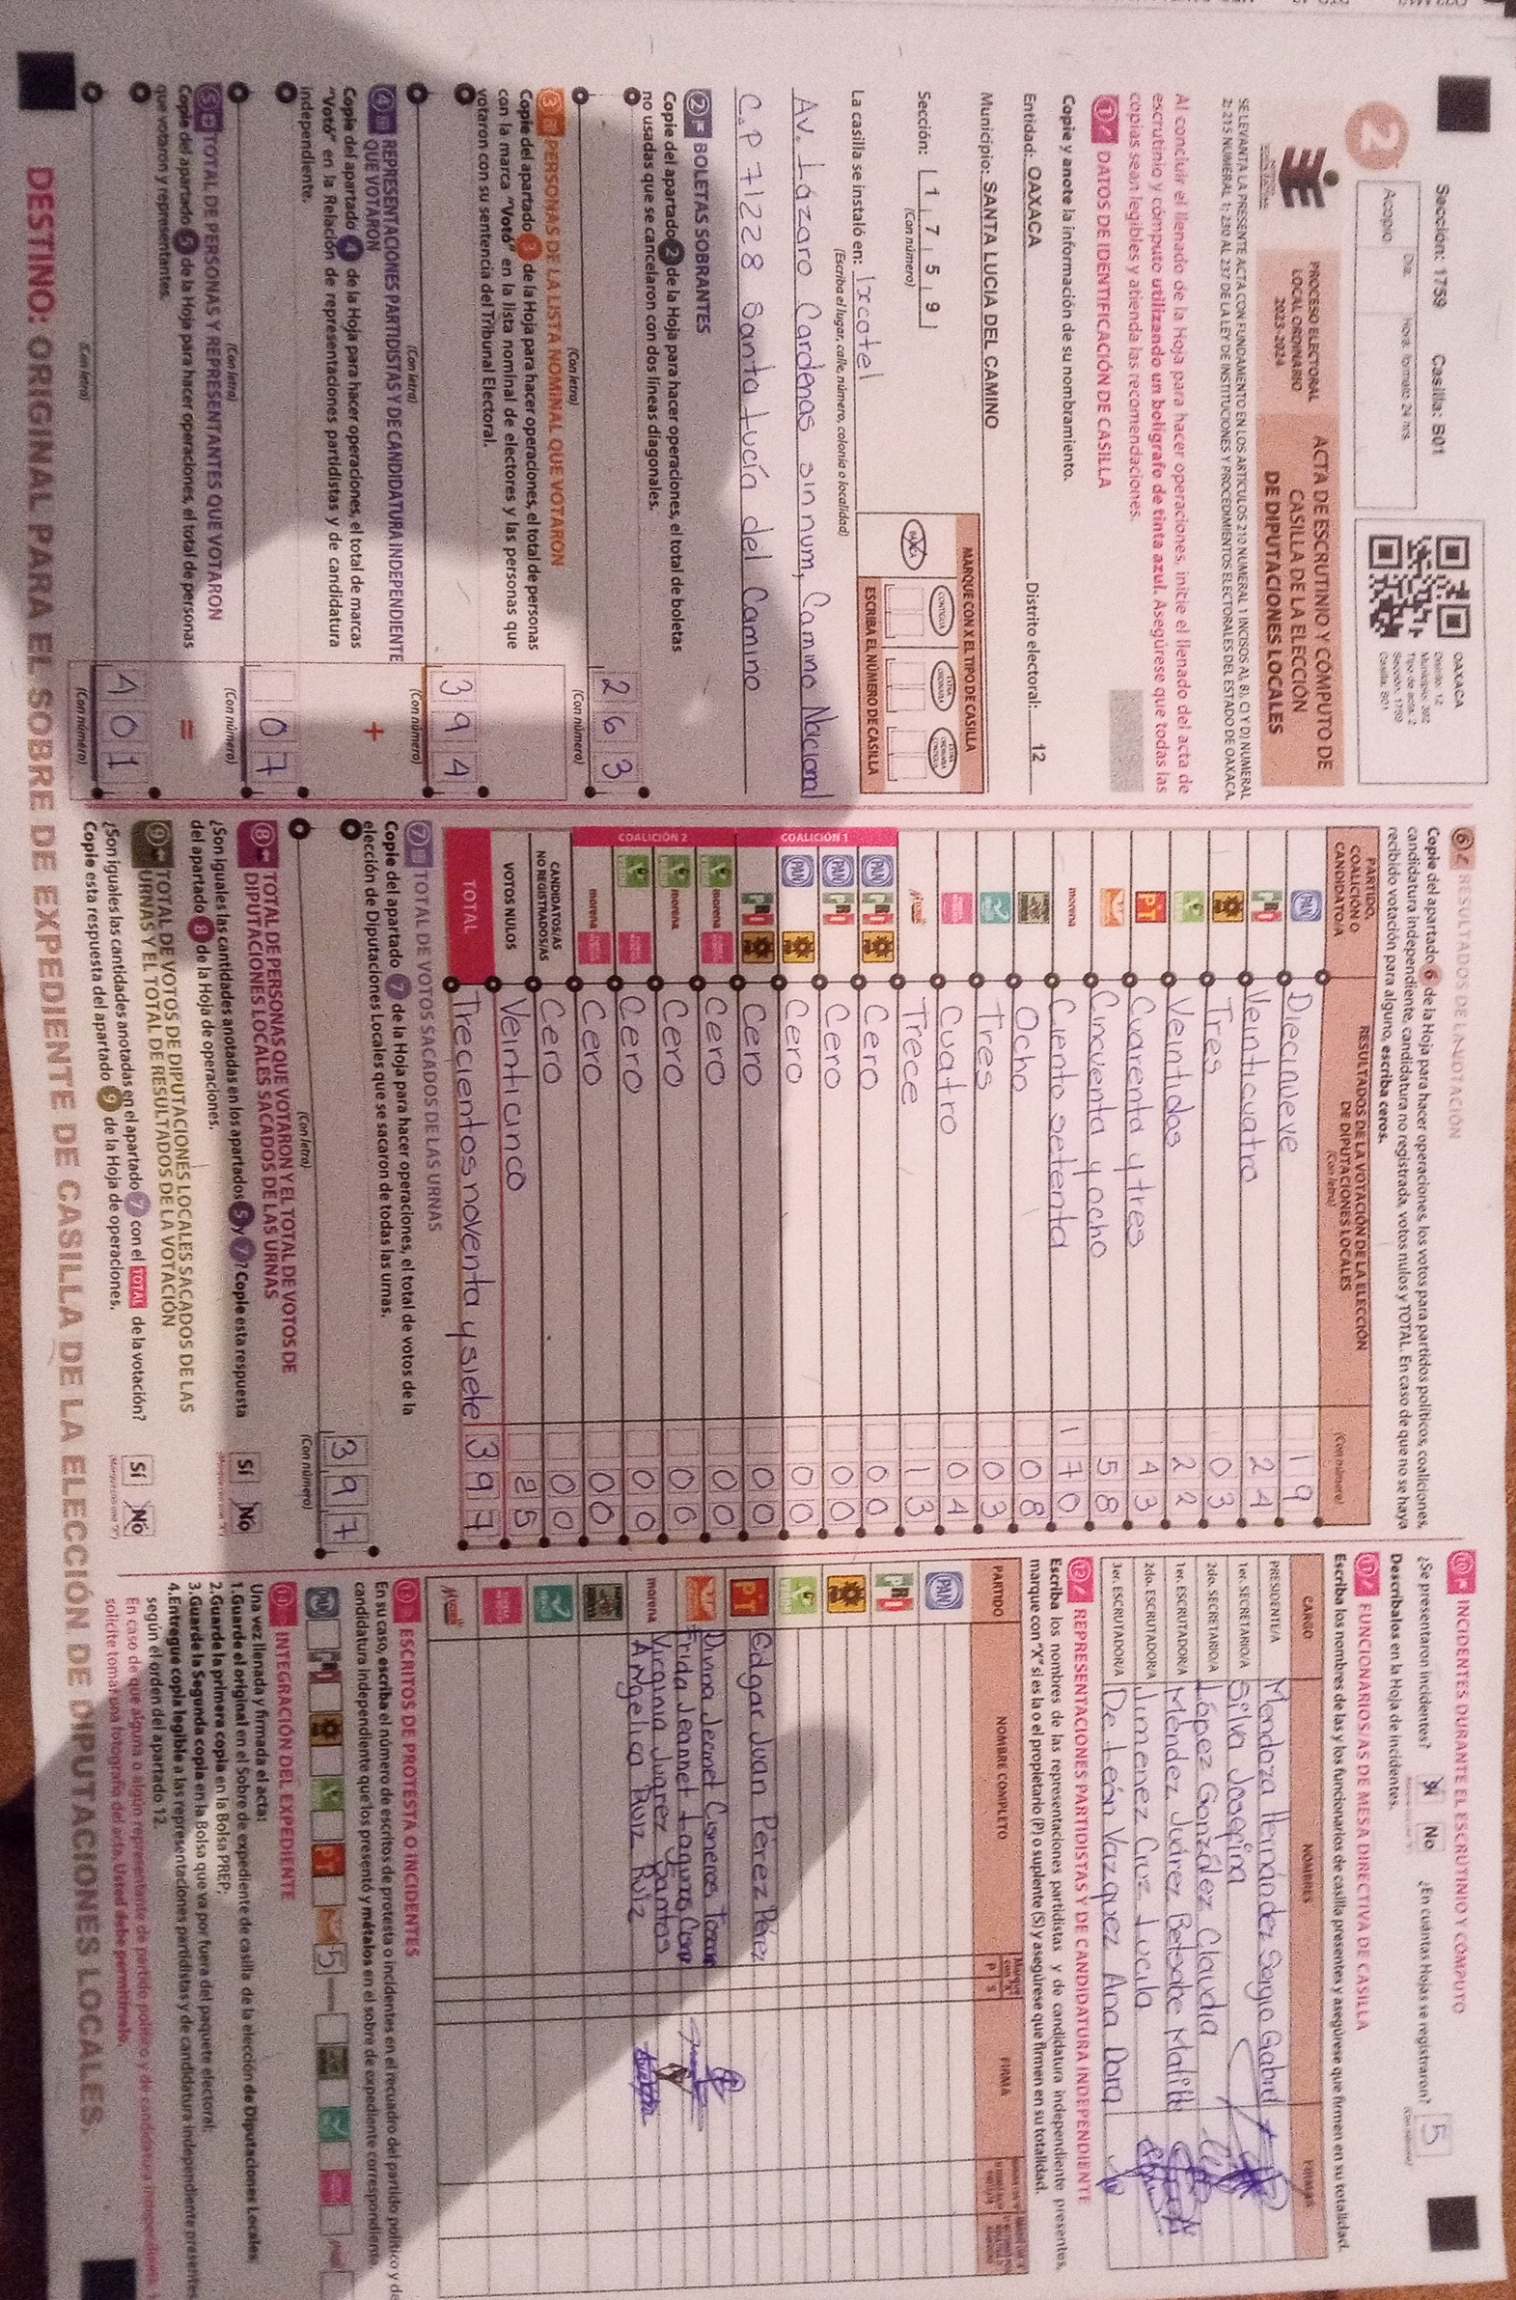 Sección: 1759 Casilla: B01
2
Día: Hora: formato 24 hrs.
Acopio
OAXACA
Distrito: 12
Tipo de acta: 2
Sección: 1759
Casilla: B01
PROCESO ELECTORAL
LOCAL ORDINARIO
2023-2024
ACTA DE ESCRUTINIO Y CÓMPUTO DE
CASILLA DE LA ELECCIÓN
DE DIPUTACIONES LOCALES
Al concluir el llenado de la Hoja para hacer operaciones, inicie el llenado del acta de
escrutinio y cómputo utilizando un bolígrafo de tinta azul. Asegúrese que todas las
copias sean legibles y atienda las recomendaciones.
1 DATOS DE IDENTIFICACIÓN DE CASILLA
Copie y anote la información de su nombramiento.
Entidad: OAXACA Distrito electoral: 12
Municipio: SANTA LUCIA DEL CAMINO
Sección: 1 7 5 9
(Con número)
MARQUE CON X EL TIPO DE CASILLA
ESCRIBA EL NÚMERO DE CASILLA
La casilla se instaló en: Ixcotel
(Escriba el lugar, calle, número, colonia o localidad)
Av. Lázaro Cardenas sin num, Camino Nacional
C.P 71228 Santa Lucía del Camino
2 BOLETAS SOBRANTES
Copie del apartado 2 de la Hoja para hacer operaciones, el total de boletas
no usadas que se cancelaron con dos líneas diagonales.
2 6 3
(Con letra) (Con número)
3 PERSONAS DE LA LISTA NOMINAL QUE VOTARON
Copie del apartado 3 de la Hoja para hacer operaciones, el total de personas
con la marca "Votó" en la lista nominal de electores y las personas que
votaron con su sentencia del Tribunal Electoral.
3 9 4
(Con letra) (Con número)
4 REPRESENTACIONES PARTIDISTAS Y DE CANDIDATURA INDEPENDIENTE
QUE VOTARON
+
Copie del apartado 4 de la Hoja para hacer operaciones, el total de marcas
"Votó" en la Relación de representaciones partidistas y de candidatura
independiente.
0 7
(Con letra) (Con número)
5 TOTAL DE PERSONAS Y REPRESENTANTES QUE VOTARON
=
Copie del apartado 5 de la Hoja para hacer operaciones, el total de personas
que votaron y representantes.
4 0 1
(Con letra) (Con número)
6 RESULTADOS DE LA VOTACIÓN
Copie del apartado 6 de la Hoja para hacer operaciones, los votos para partidos políticos, coaliciones,
candidatura independiente, candidatura no registrada, votos nulos y TOTAL. En caso de que no se haya
recibido votación para alguno, escriba ceros.
PARTIDO,
COALICIÓN O
CANDIDATO/A
RESULTADOS DE LA VOTACIÓN DE LA ELECCIÓN
DE DIPUTACIONES LOCALES
(Con letra)
(Con número)
PAN Diecinueve 1 9
PRI Veinticuatro 2 4
PRD Tres 0 3
Veintidos 2 2
PT Cuarenta y tres 4 3
Cincuenta y ocho 5 8
morena Ciento setenta 1 7 0
Ocho 0 8
Tres 0 3
Cuatro 0 4
Trece 1 3
COALICIÓN 1
PAN PRI PRD Cero 0 0
PAN PRI Cero 0 0
PAN PRD Cero 0 0
PRI PRD Cero 0 0
COALICIÓN 2
morena Cero 0 0
morena Cero 0 0
Cero 0 0
morena Cero 0 0
CANDIDATOS/AS
NO REGISTRADOS/AS
Cero 0 0
VOTOS NULOS Veinticinco 2 5
TOTAL Trecientos noventa y siete 3 9 7
7 TOTAL DE VOTOS SACADOS DE LAS URNAS
Copie del apartado 7 de la Hoja para hacer operaciones, el total de votos de la
elección de Diputaciones Locales que se sacaron de todas las urnas.
3 9 7
(Con letra) (Con número)
8 TOTAL DE PERSONAS QUE VOTARON Y EL TOTAL DE VOTOS DE
DIPUTACIONES LOCALES SACADOS DE LAS URNAS
¿Son iguales las cantidades anotadas en los apartados 5 y 7? Copie esta respuesta
del apartado 8 de la Hoja de operaciones.
Sí No
9 TOTAL DE VOTOS DE DIPUTACIONES LOCALES SACADOS DE LAS
URNAS Y EL TOTAL DE RESULTADOS DE LA VOTACIÓN
¿Son iguales las cantidades anotadas en el apartado 7 con el TOTAL de la votación?
Copie esta respuesta del apartado 9 de la Hoja de operaciones.
Sí No
10 INCIDENTES DURANTE EL ESCRUTINIO Y CÓMPUTO
¿Se presentaron incidentes? Sí No ¿En cuántas Hojas se registraron? 5
Descríbalos en la Hoja de Incidentes.
11 FUNCIONARIOS/AS DE MESA DIRECTIVA DE CASILLA
Escriba los nombres de las y los funcionarios de casilla presentes y asegúrese que firmen en su totalidad.
CARGO NOMBRES FIRMAS
PRESIDENTE/A Mendoza Hernández Sergio Gabriel
1er. SECRETARIO/A Silva Josefina
2do. SECRETARIO/A López González Claudia
1er. ESCRUTADOR/A Méndez Juárez Betsabe
2do. ESCRUTADOR/A Jimenez Cruz Lucila
3er. ESCRUTADOR/A De León Vazquez Ana Dora
12 REPRESENTACIONES PARTIDISTAS Y DE CANDIDATURA INDEPENDIENTE
Escriba los nombres de las representaciones partidistas y de candidatura independiente presentes,
marque con "X" si es la o el propietario (P) o suplente (S) y asegúrese que firmen en su totalidad.
PARTIDO NOMBRE COMPLETO P S FIRMA
PAN
PRI
PRD
PT Edgar Juan Pérez Pérez
Divina Jeannet Cisneros
Frida Jeannet
morena Virginia Juárez Santos
Angelica Ruiz Ruiz
13 ESCRITOS DE PROTESTA O INCIDENTES
En su caso, escriba el número de escritos de protesta o incidentes en el recuadro del partido político y de
candidatura independiente que los presentó y métalos en el sobre de expediente correspondiente.
PAN PRI PRD PT 5
14 INTEGRACIÓN DEL EXPEDIENTE
Una vez llenada y firmada el acta:
1.Guarde el original en el Sobre de expediente de casilla de la elección de Diputaciones Locales.
2.Guarde la primera copia en la Bolsa PREP;
3.Guarde la Segunda copia en la Bolsa que va por fuera del paquete electoral;
4.Entregue copia legible a las representaciones partidistas y de candidatura independiente presentes
según el orden del apartado 12.
En caso de que alguna o algún representante de partido político y de candidatura independiente
solicite tomar una fotografía del acta, Usted debe permitírselo.
DESTINO: ORIGINAL PARA EL SOBRE DE EXPEDIENTE DE CASILLA DE LA ELECCIÓN DE DIPUTACIONES LOCALES.